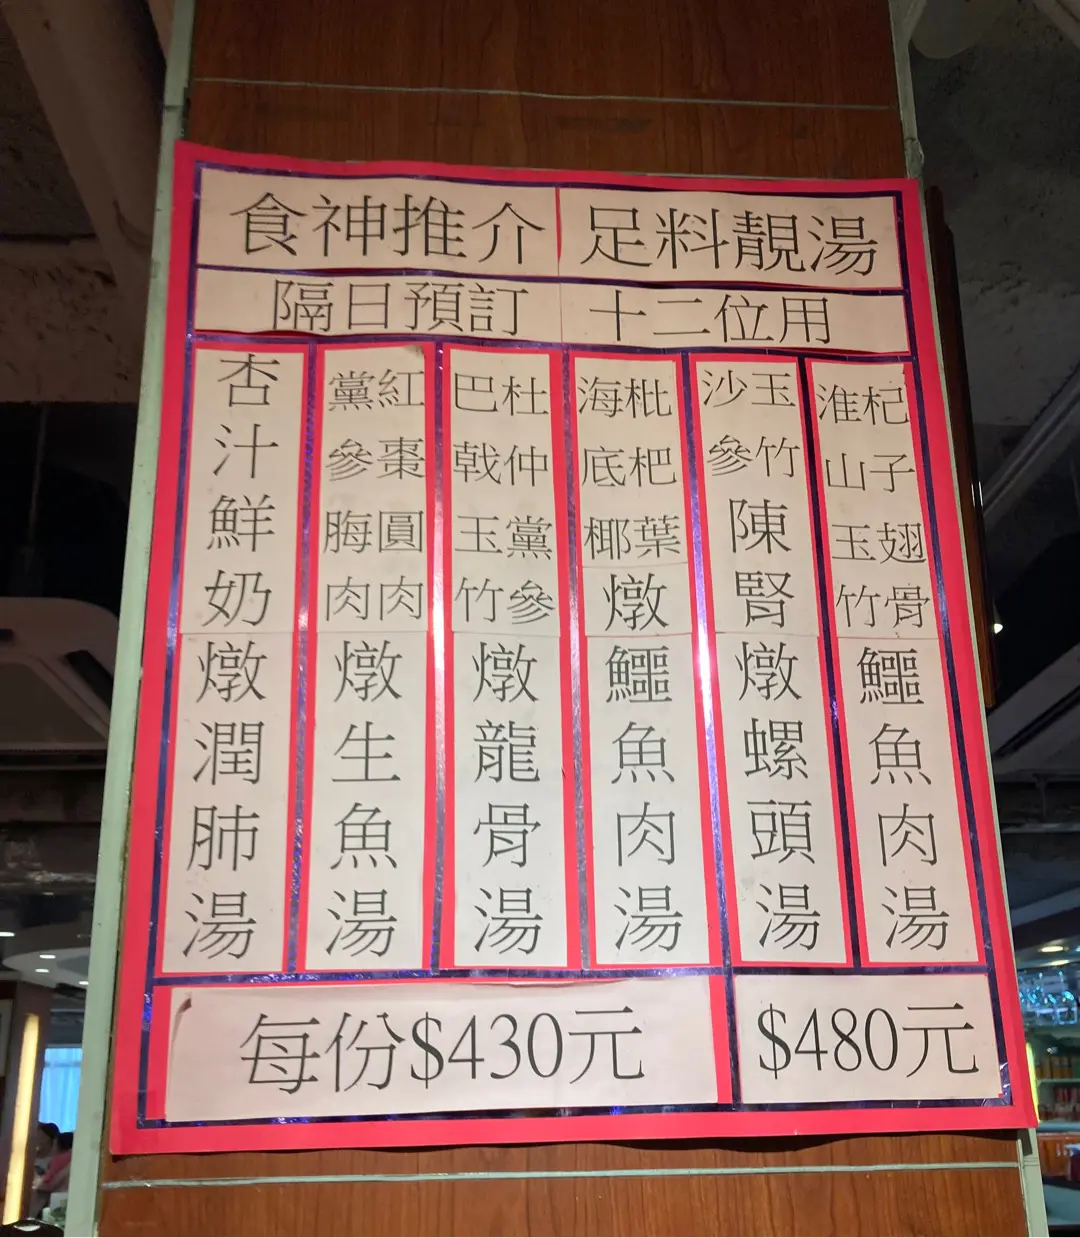 食神推介 足料靚湯
隔日預訂 十二位用
杞子翅骨淮山玉竹鱷魚肉湯
玉竹沙參陳腎燉螺頭湯
枇杷葉海底椰燉鱷魚肉湯
杜仲黨參巴戟玉竹燉龍骨湯
紅棗圓肉黨參脢肉燉生魚湯
杏汁鮮奶燉潤肺湯
每份$430元
$480元